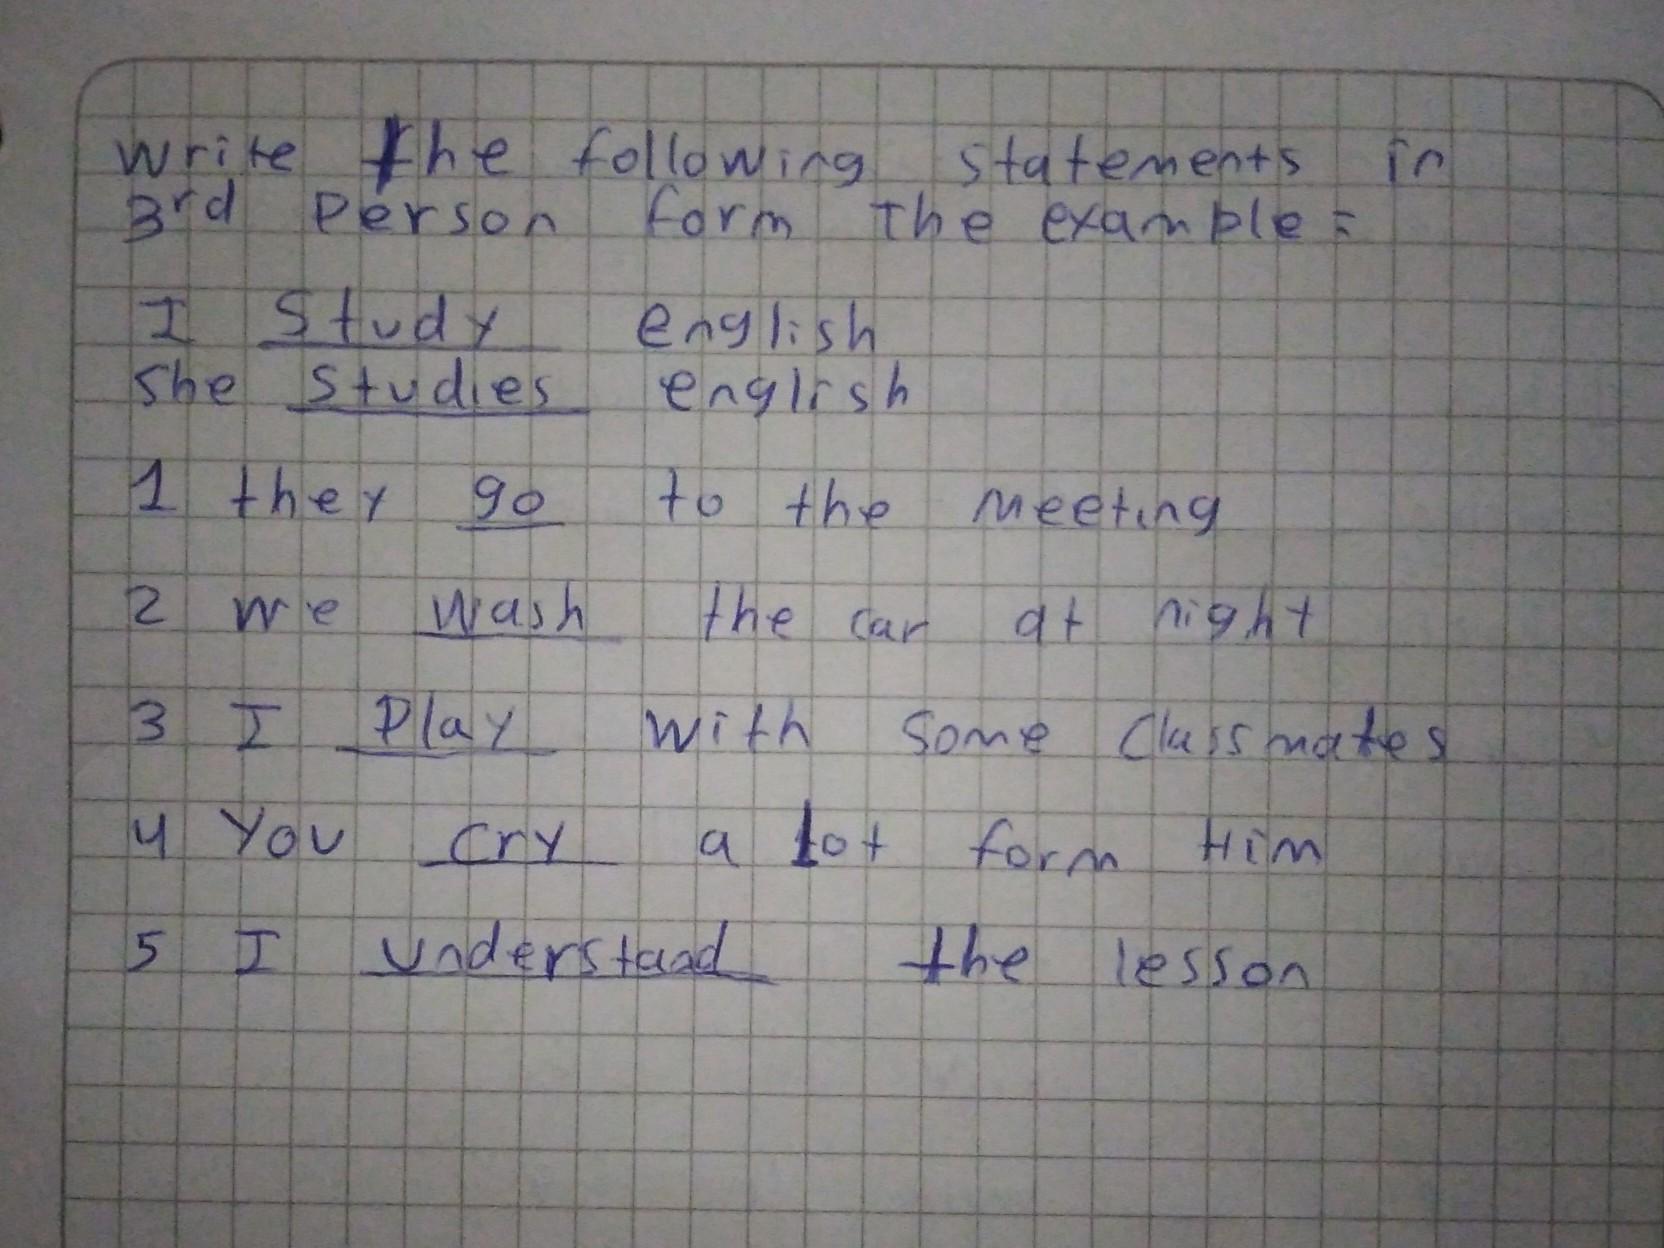 Write the following statements in
3rd Person form the example =
I Study english
She Studies english
1 they go to the meeting
2 we wash the car at night
3 I Play with some Classmates
4 You cry a lot form Him
5 I understand the lesson